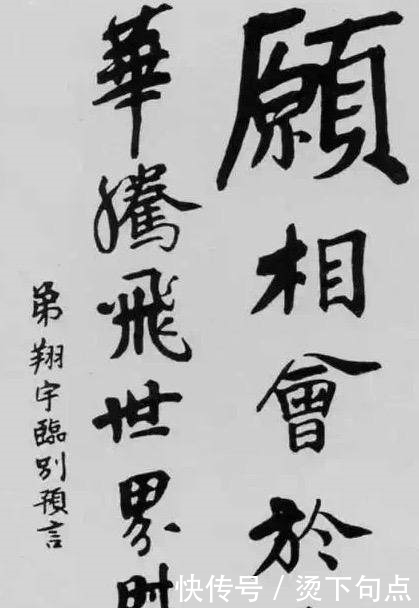 願相會於
華騰飛世界时
弟翔宇臨别預言
快传号 / 烫下句点